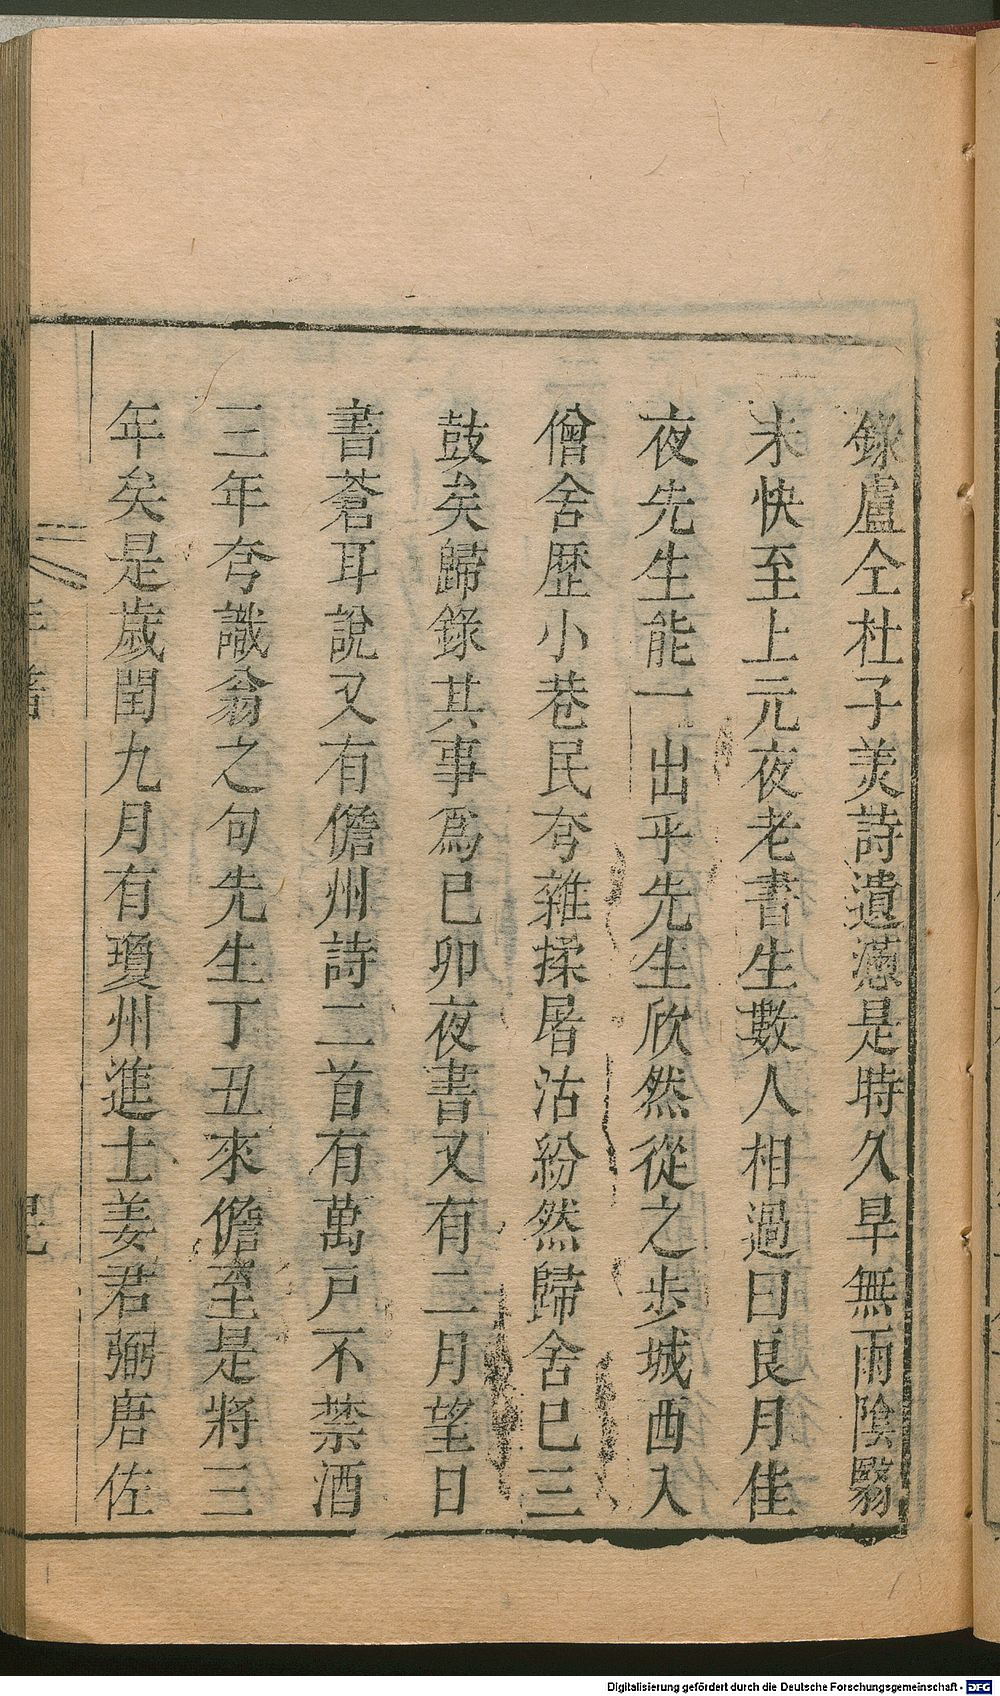 錄盧仝杜子美詩遺懣是時久旱無雨陰翳
未快至上元夜老書生數人相過曰良月佳
夜先生能一出乎先生欣然從之步城西入
僧舍歷小巷民夸雜揉屠沽紛然歸舍已三
鼓矣歸錄其事爲己卯夜書又有二月望日
書蒼耳說又有儋州詩二首有萬戶不禁酒
三年夸識翁之句先生丁丑來儋至是將三
年矣是歲閏九月有瓊州進士姜君弼唐佐
年譜
Digitalisierung gefördert durch die Deutsche Forschungsgemeinschaft - DFG